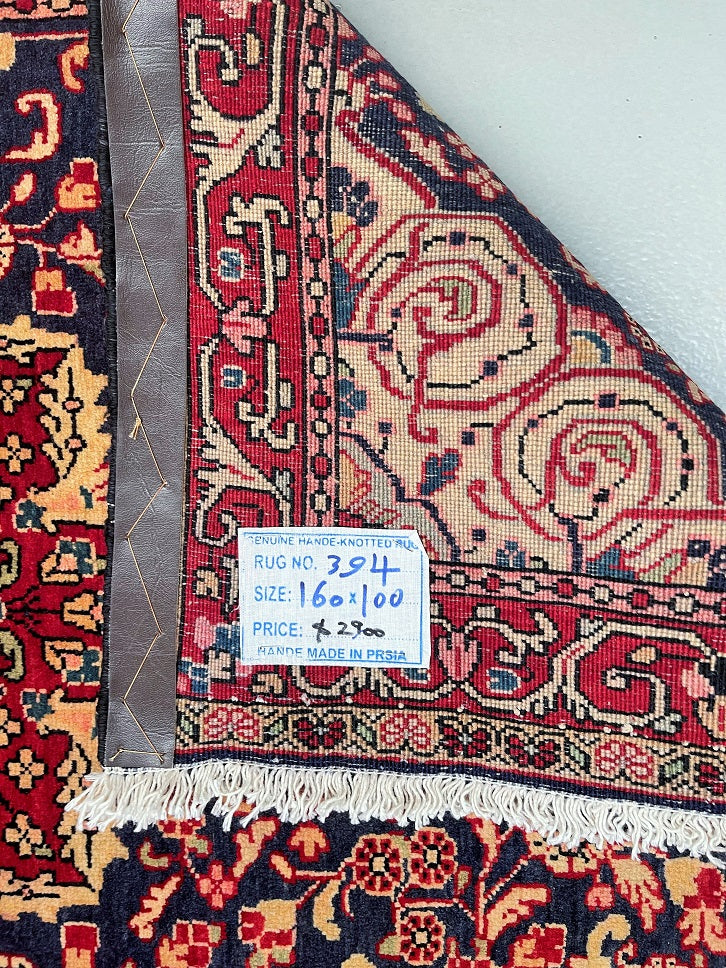 GENUINE HANDE-KNOTTED RUG
RUG NO. 394
SIZE: 160 x 100
PRICE: $ 2900
HANDE MADE IN PRSIA